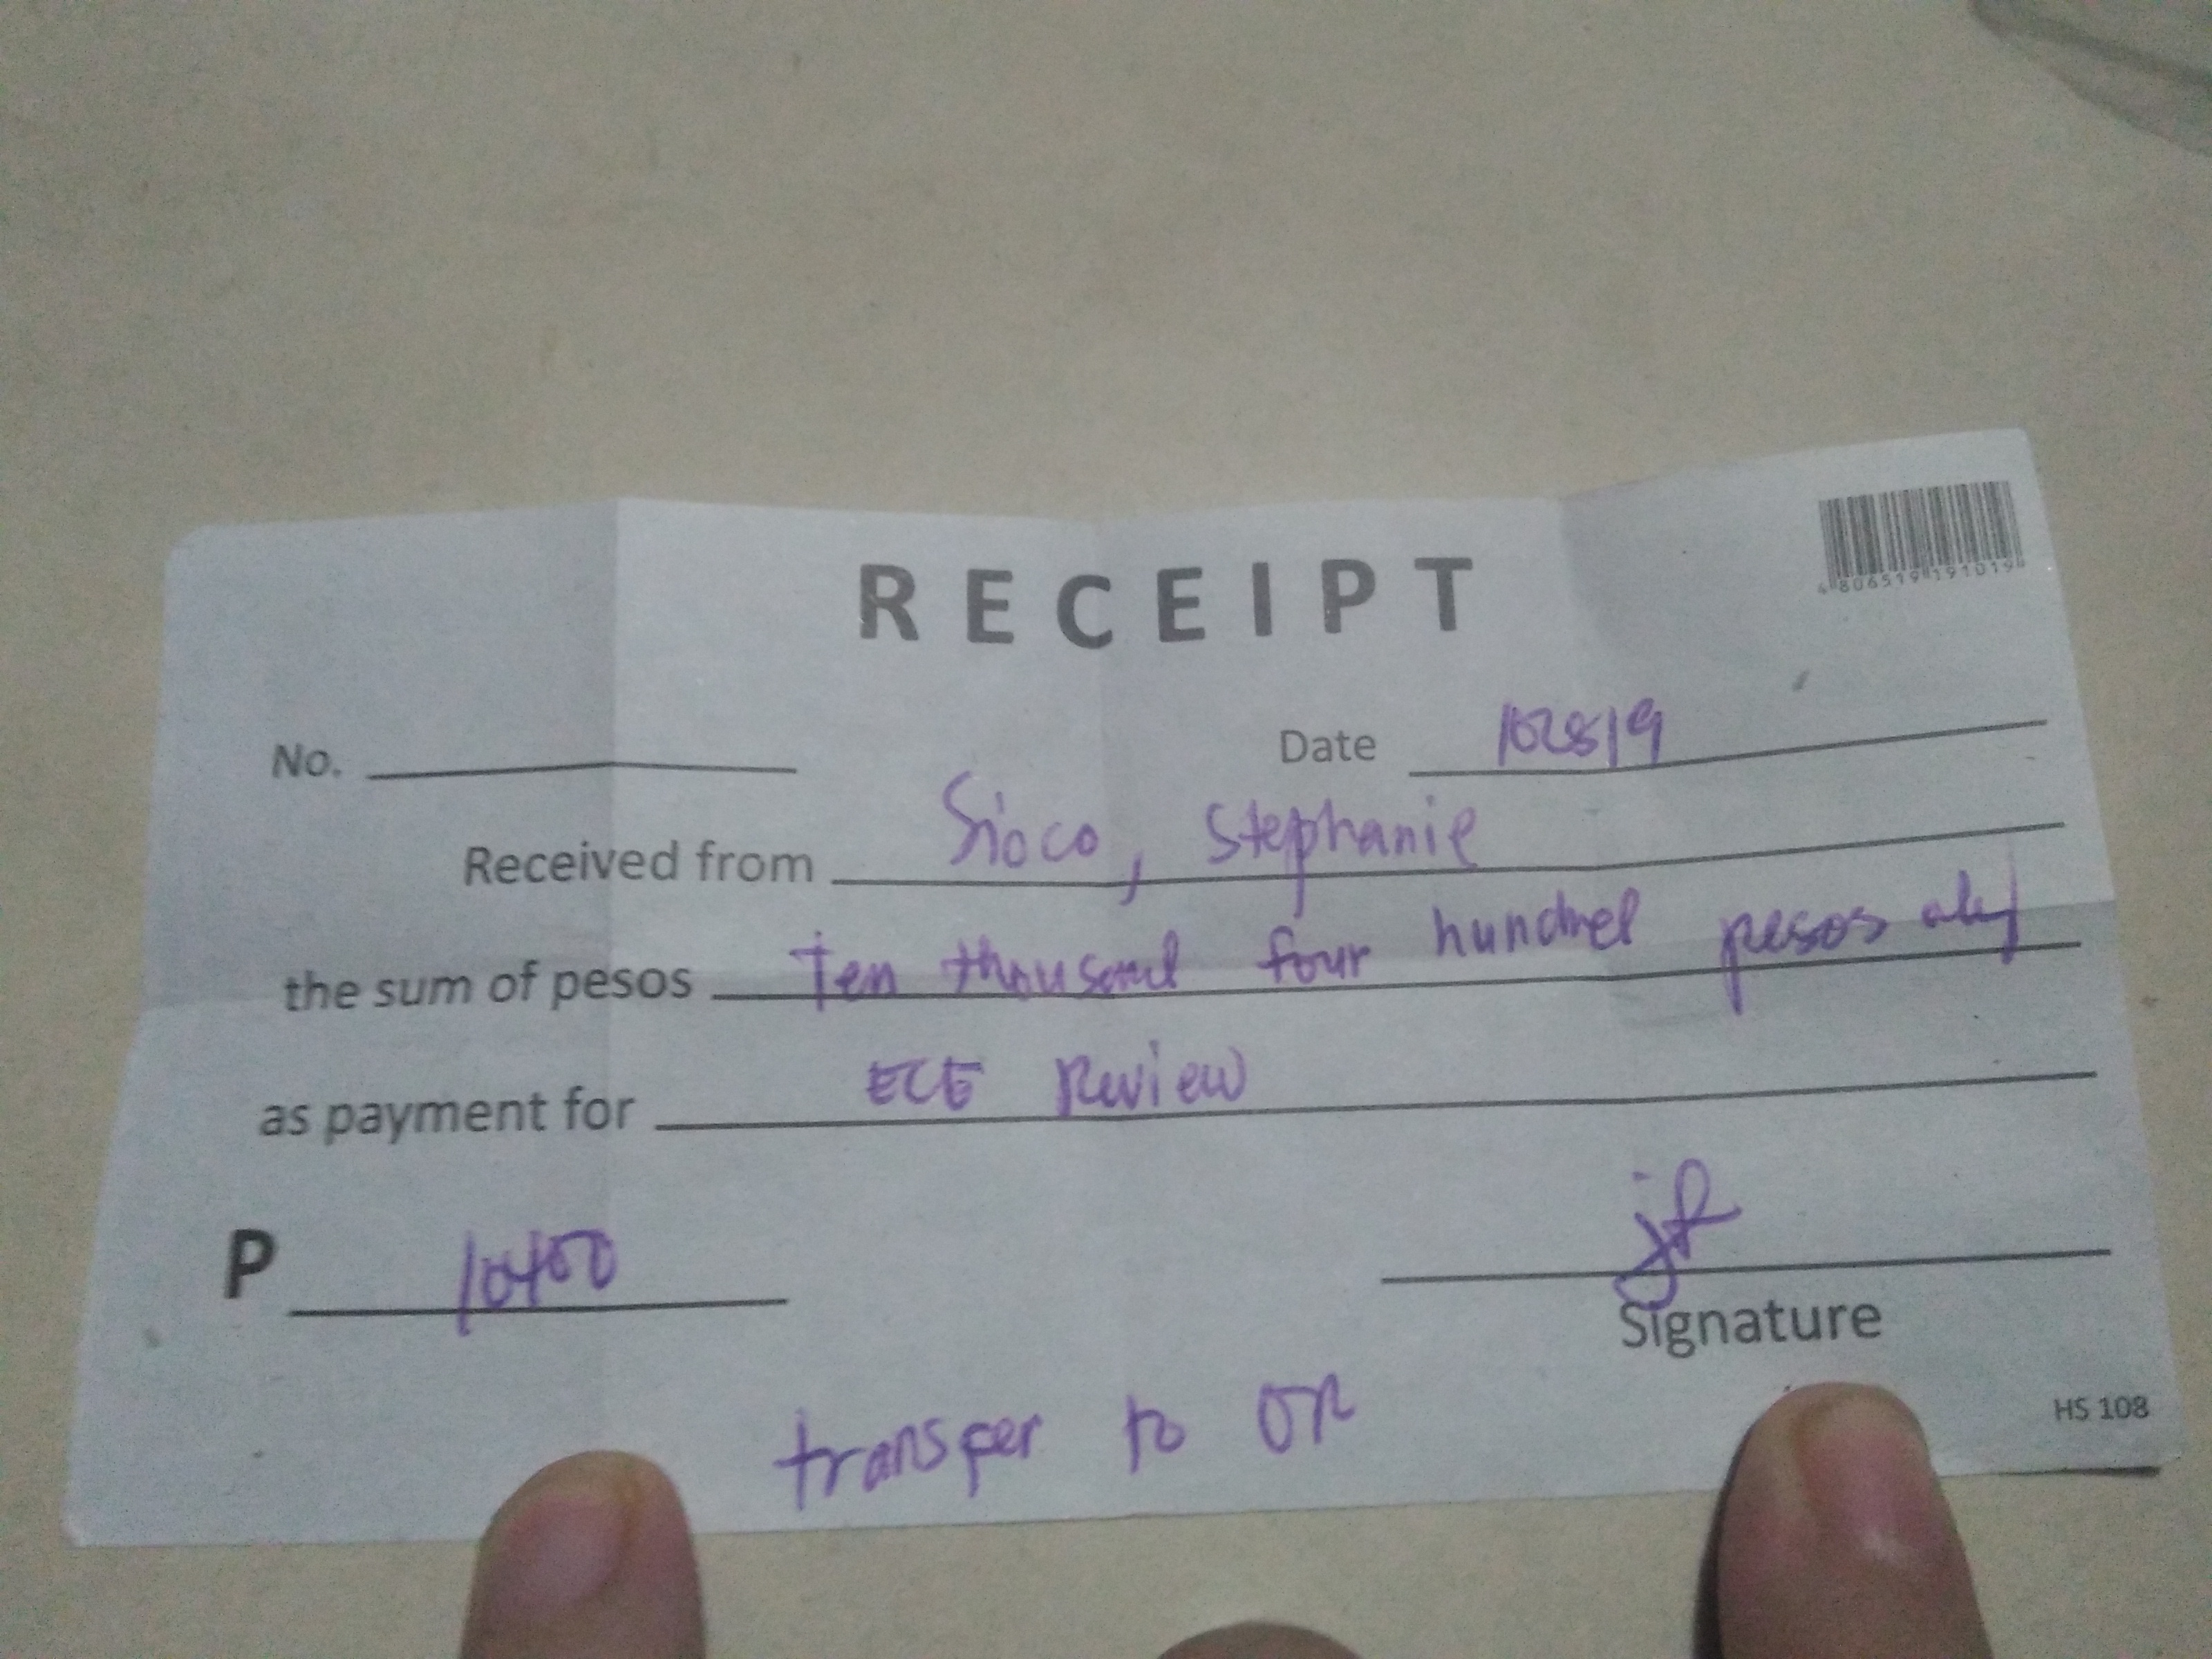 RECEIPT
4 806519 191019
No. Date 102819
Received from Sioco, Stephanie
the sum of pesos Ten thousand four hundred pesos only
as payment for ECE Review
P 10400
Signature
transfer to OR
HS 108